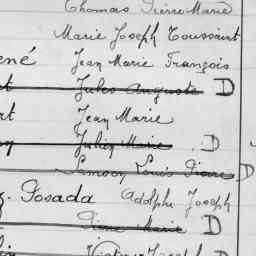 Thomas Pierre Marie
Marie Joseph Toussaint
ené Jean Marie François
t Jules Auguste D
rt Jean Marie
y Julien Marie D
Samson Louis Pierre D
z. Posada Adolphe Joseph
Pierre Marie D
Joseph D